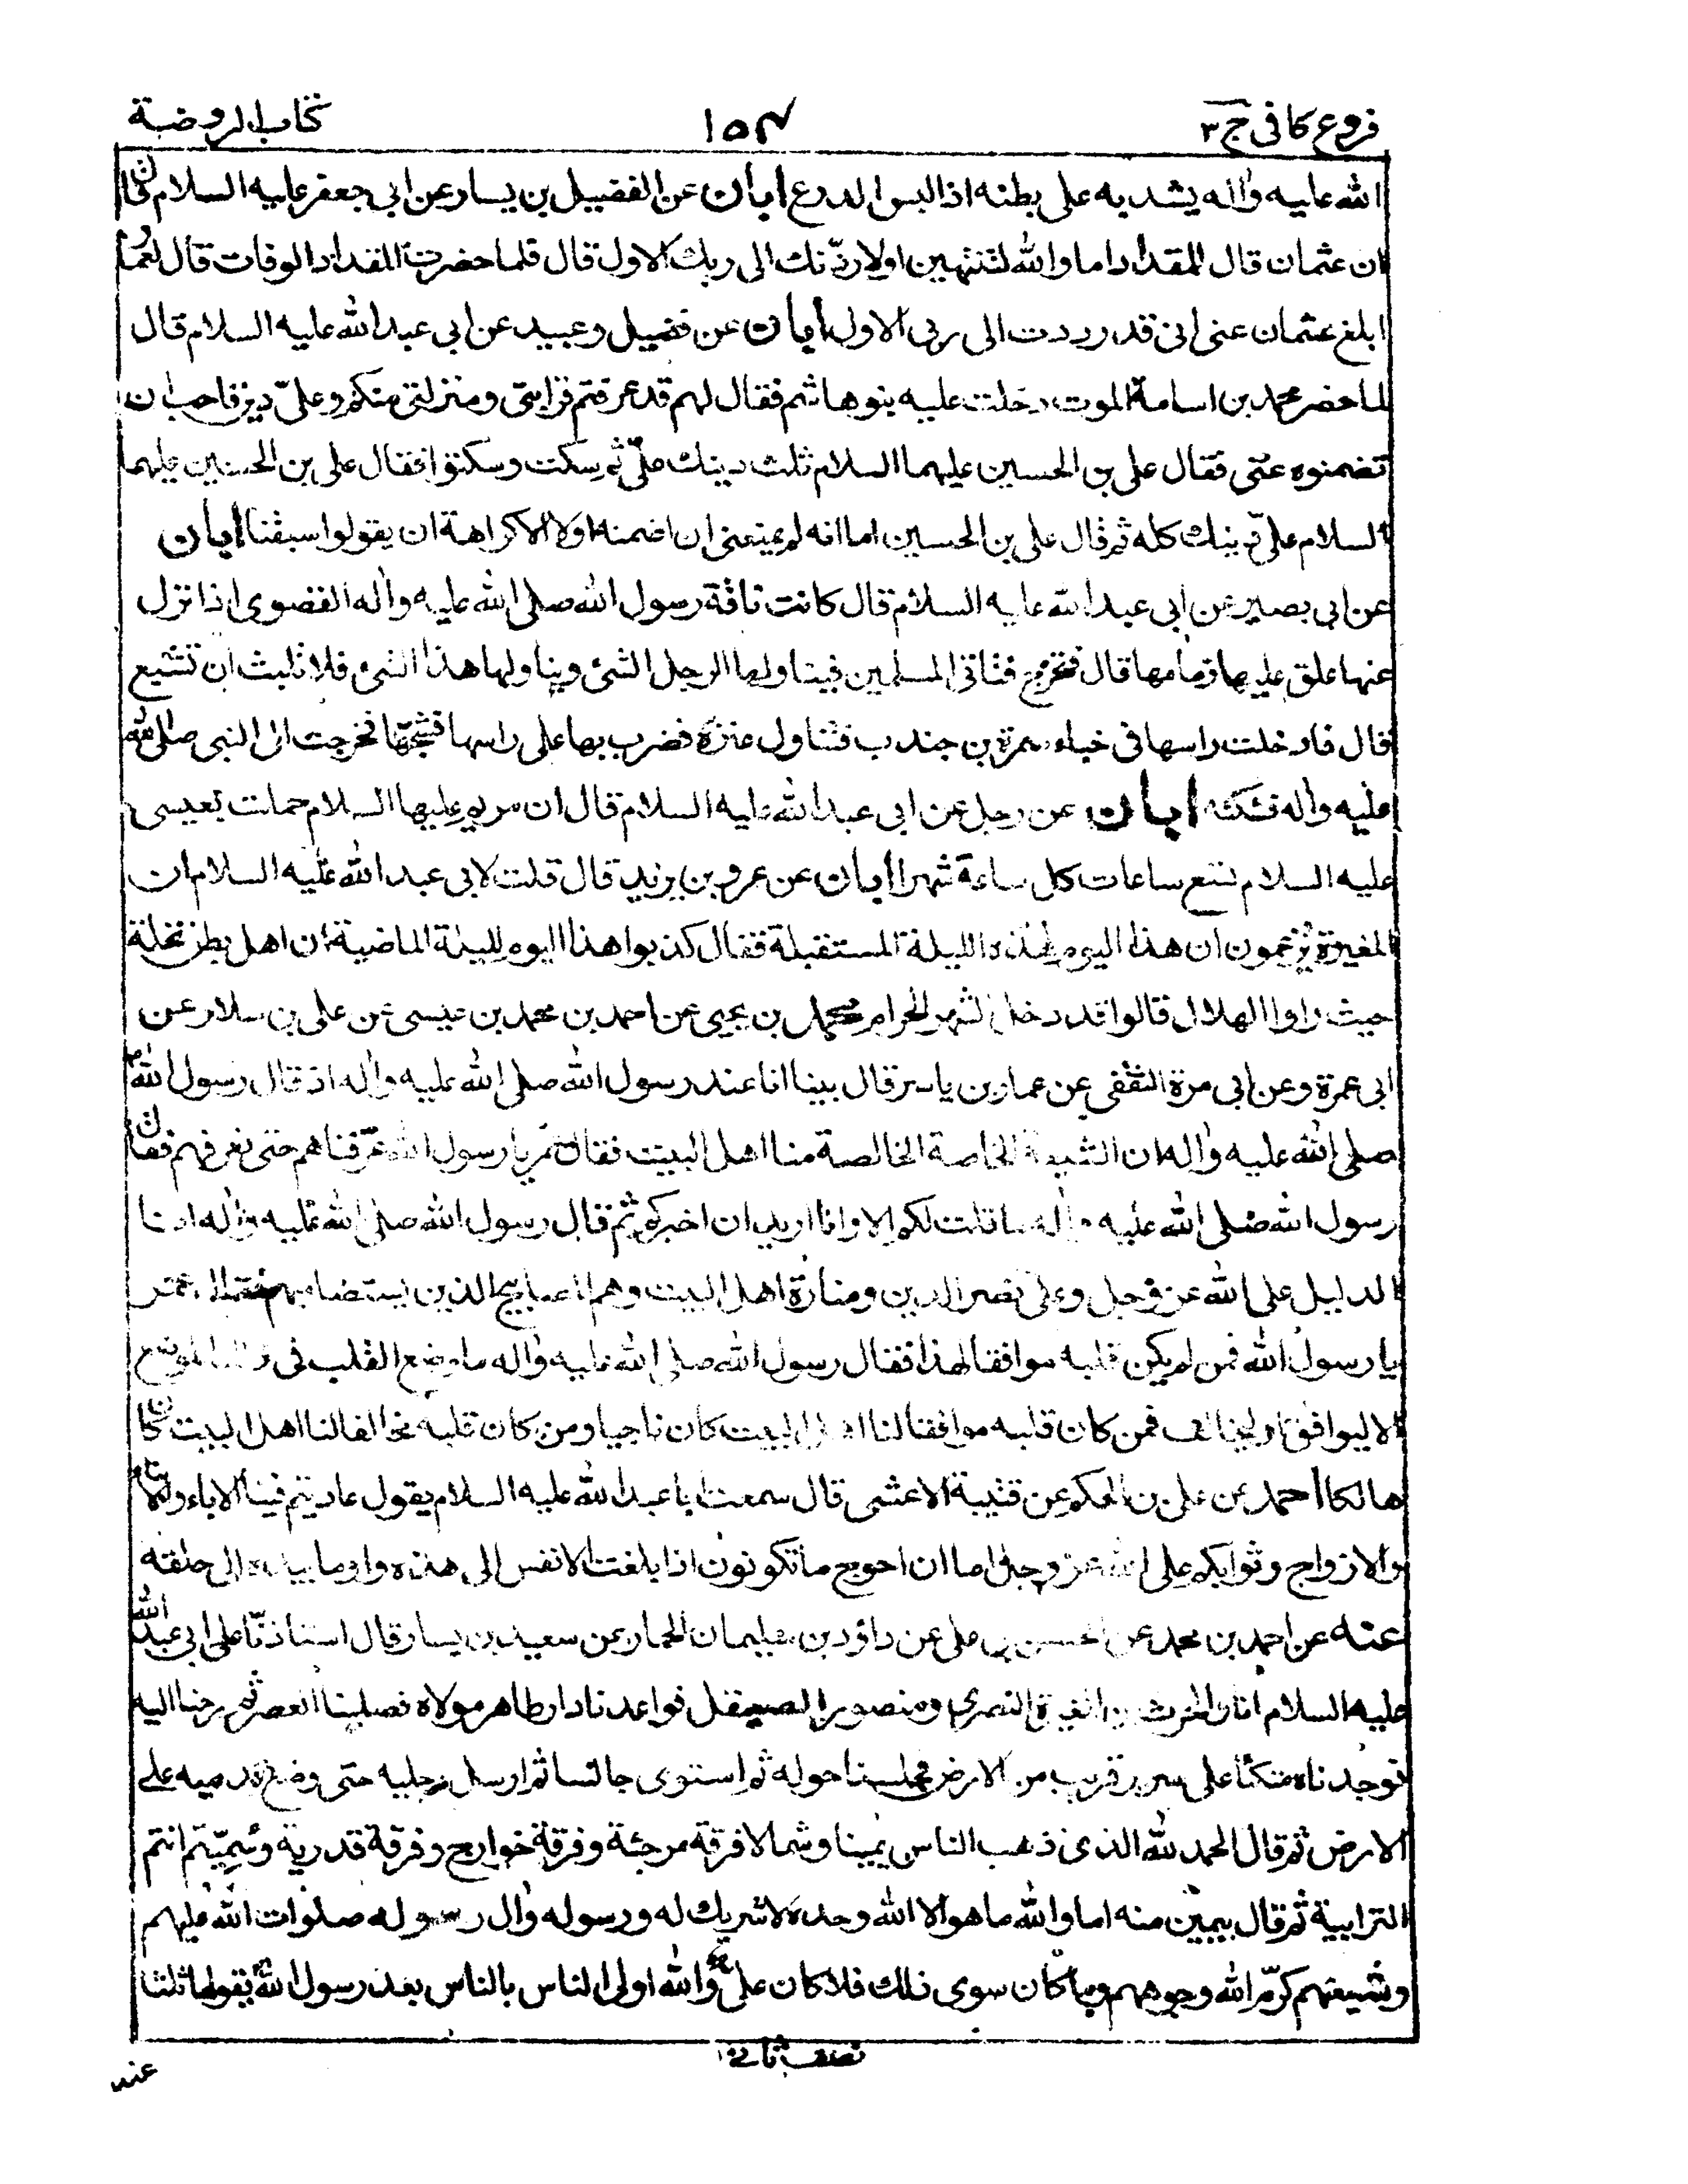 فروع كافى ج ٣
١٥٤
كتاب الروضة
الله عليه واٰله يشد به على بطنه اذا لبس الدرع ابان عن الفضيل بن يسار عن ابى جعفر عليه السلام قال
ان عثمان قال للمقداد اما والله لتنتهين اولا ردّنك الى ربك الاول قال فلما حضرت المقداد الوفات قال لعمار
ابلغ عثمان عنى انى قد رددت الى ربى الاول ابان عن فضيل وعبيد عن ابى عبد الله عليه السلام قال
لما حضر محمد بن اسامة الموت دخلت عليه بنو هاشم فقال لهم قد عرفتم قرابتى ومنزلتى منكم وعلىّ دين فاحب ان
تضمنوه عنى فقال على بن الحسين عليهما السلام ثلث دينك علىّ ثم سكت وسكتوا فقال على بن الحسين عليهما
السلام علىّ دينك كله ثم قال على بن الحسين اما انه لم يمنعنى ان اضمنه اولا الا كراهة ان يقولوا سبقنا ابان
عن ابى بصير عن ابى عبد الله عليه السلام قال كانت ناقة رسول الله صلى الله عليه واٰله القصوى اذا نزل
عنها علق عليها زمامها قال فتخرج فتاتى المسلمين فيناولها الرجل الشئ ويناولها هذا الشئ فلا تلبث ان تشبع
قال فادخلت راسها فى خباء سمرة بن جندب فتناول عنزة فضرب بها على راسها فشجّها فخرجت الى النبى صلى الله
عليه واله فشكته ابان عن رجل عن ابى عبد الله عليه السلام قال ان مريم عليها السلام حملت بعيسى
عليه السلام تسع ساعات كل ساعة شهرا ابان عن عمرو بن يزيد قال قلت لابى عبد الله عليه السلام ان
المغيرة يزعمون ان هذا اليوم لهذه الليلة المستقبلة فقال كذبوا هذا اليوم لليلة الماضية ان اهل بطن نخلة
حيث راوا الهلال قالوا قد دخل الشهر الحرام محمد بن يحيى عن احمد بن محمد بن عيسى عن على بن سلار عن
ابى عمرة وعن ابى مرة الثقفى عن عمار بن ياسر قال بينا انا عند رسول الله صلى الله عليه واٰله اذ قال رسول الله
صلى الله عليه واٰله ان الشيعة الخاصة الخالصة منا اهل البيت فقال عمر يا رسول الله عرّفناهم حتى نعرفهم فقال
رسول الله صلى الله عليه واٰله ما قلت لكم الا وانا اريد ان اخبركم ثم قال رسول الله صلى الله عليه واٰله انا
الدليل على الله عز وجل وعلى نصر الدين ومنارة اهل البيت وهم المصابيح الذين يستضاء بهم فقال عمر
يا رسول الله فمن لم يكن قلبه موافقا لهذا فقال رسول الله صلى الله عليه واٰله ما وضع القلب فى ذلك الموضع
الا ليوافق او ليخالف فمن كان قلبه موافقا لنا اهل البيت كان ناجيا ومن كان قلبه مخالفا لنا اهل البيت كان
هالكا احمد عن على بن الحكم عن قتيبة الاعشى قال سمعت ابا عبد الله عليه السلام يقول عاديتم فينا الاباء والابناء
والازواج وثوابكم على الله عز وجل اما ان احوج ما تكونون اذا بلغت الانفس الى هذه واوما بيده الى حلقه
عنه عن احمد بن محمد عن الحسن بن على عن داؤد بن سليمان الحمار عن سعيد بن يسار قال استاذنّا على ابى عبد الله
عليه السلام انا والحرث بن المغيرة النصرى ومنصور الصيقل فواعدنا دار طاهر مولاه فصلينا العصر ثم رحنا اليه
فوجدناه متكئا على سرير قريب من الارض فجلسنا حوله ثم استوى جالسا ثم ارسل رجليه حتى وضع قدميه على
الارض ثم قال الحمد لله الذى ذهب الناس يمينا وشمالا فرقة مرجئة وفرقة خوارج وفرقة قدرية وسمّيتم انتم
الترابية ثم قال بيمين منه اما والله ما هو الا الله وحده لا شريك له ورسوله واٰل رسوله صلوات الله عليهم
وشيعتهم كرّم الله وجوههم وما كان سوى ذلك فلا كان على والله اولى الناس بالناس بعد رسول الله يقولها ثلثا
نصف ثانى
عند